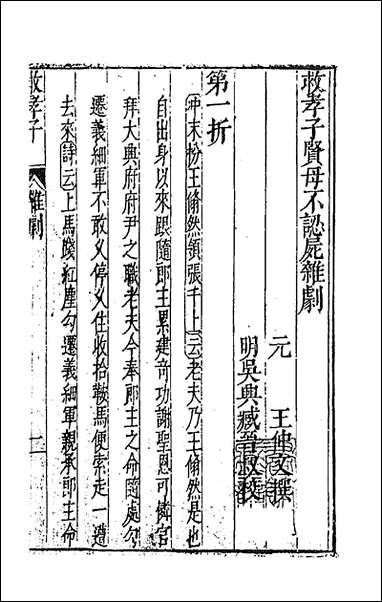 救孝子賢母不認屍雜劇
元　王仲文撰
明吳興臧晉叔校
第一折
冲末扮王翛然領張千上云老夫乃王翛然是也
自出身以來跟隨郎主累建奇功謝聖恩可憐官
拜大興府府尹之職老夫今奉郎主之命隨處勾
遷義細軍不敢乂停乂住收拾鞍馬便索走一遭
去來詩云上馬踐紅塵勾遷義細軍親承郎主命
救孝子
雜劇
一